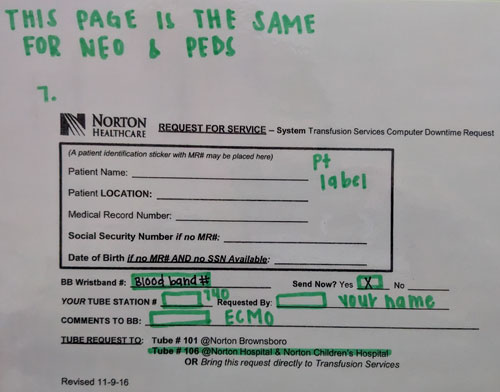 THIS PAGE IS THE SAME
FOR NEO & PEDS
7.
NORTON
HEALTHCARE
REQUEST FOR SERVICE – System Transfusion Services Computer Downtime Request
(A patient identification sticker with MR# may be placed here)
Patient Name:
Pt
label
Patient LOCATION:
Medical Record Number:
Social Security Number if no MR#:
Date of Birth if no MR# AND no SSN Available:
BB Wristband #: Blood band # Send Now? Yes X No
YOUR TUBE STATION # 740 Requested By: your name
COMMENTS TO BB: ECMO
TUBE REQUEST TO: Tube # 101 @Norton Brownsboro
Tube # 106 @Norton Hospital & Norton Children's Hospital
OR Bring this request directly to Transfusion Services
Revised 11-9-16